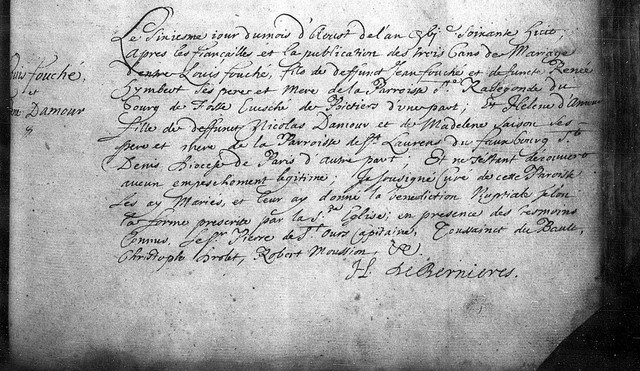 Le Sixiesme iour du mois d'Aoust de l'an Soixante huict,
Apres les fiançailles et la publication des trois bans de Mariage
D'entre Louis fouché, fils de deffunct Jean fouché et de functe Renée
Gymbert Ses pere et Mere de la Parroisse Ste. Radegonde du
bourg de Evesché de Poitiers d'vne part; Et Helene d'Amour
fille de deffunct Nicolas Damour et de Madelene Saison Ses
pere et Mere de la Parroisse de St. Laurens du fauxbourg St.
Denis Diocese de Paris d'autre part; Et ne s'estant decouvert
aucun empeschement legitime; Je sousigné Curé de cette Paroisse
les ay Mariés, et leur ay donné la benediction Nuptiale selon
la forme prescrite par la Ste. Eglise; en presence des tesmoins
Connus, Le Sr. Pierre de St. Ours Capitaine, Toussainct du
Christophe Robert Moussion, &.
H. de Bernieres.
Louis fouché,
et
Damour